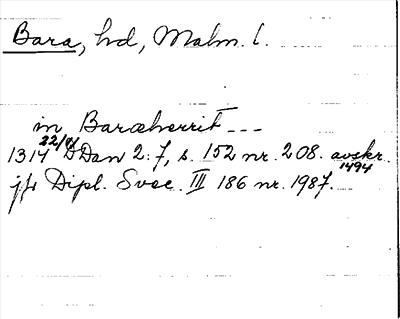 Bara, hd, Malm. l.
in Baræherrit ---
1314 22/9 DDan 2:7, s. 152 nr. 208. avskr. 1494
jfr Dipl. Svec. III 186 nr. 1987.